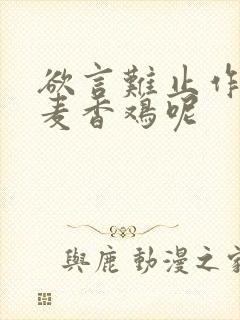 欲言難止作
麦香鸡呢
與鹿 動漫之家